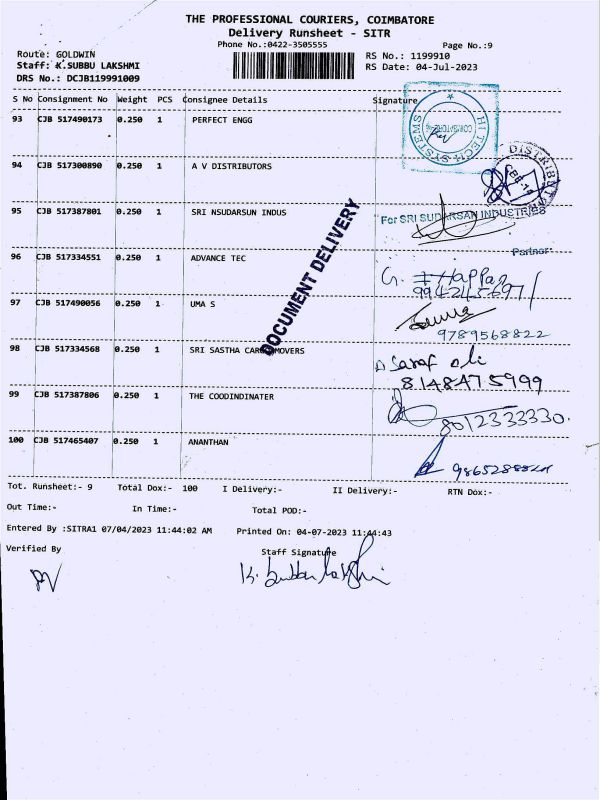 THE PROFESSIONAL COURIERS, COIMBATORE
Delivery Runsheet - SITR
Phone No.:0422-3505555 Page No.:9
Route: GOLDWIN RS No.: 1199910
Staff: K.SUBBU LAKSHMI RS Date: 04-Jul-2023
DRS No.: DCJB119991009
S No Consignment No Weight PCS Consignee Details Signature
93 CJB 517490173 0.250 1 PERFECT ENGG
HI TECH SYSTEMS
COIMBATORE
94 CJB 517300890 0.250 1 A V DISTRIBUTORS
95 CJB 517387801 0.250 1 SRI NSUDARSUN INDUS
For SRI SUDARSAN INDUSTRIES
Partner
96 CJB 517334551 0.250 1 ADVANCE TEC
97 CJB 517490056 0.250 1 UMA S
9789568822
98 CJB 517334568 0.250 1 SRI SASTHA CARGO MOVERS
8148475999
99 CJB 517387806 0.250 1 THE COODINDINATER
8012333330.
100 CJB 517465407 0.250 1 ANANTHAN
DOCUMENT DELIVERY
Tot. Runsheet:- 9 Total Dox:- 100 I Delivery:- II Delivery:- RTN Dox:-
Out Time:- In Time:- Total POD:-
Entered By :SITRA1 07/04/2023 11:44:02 AM Printed On: 04-07-2023 11:44:43
Verified By Staff Signature